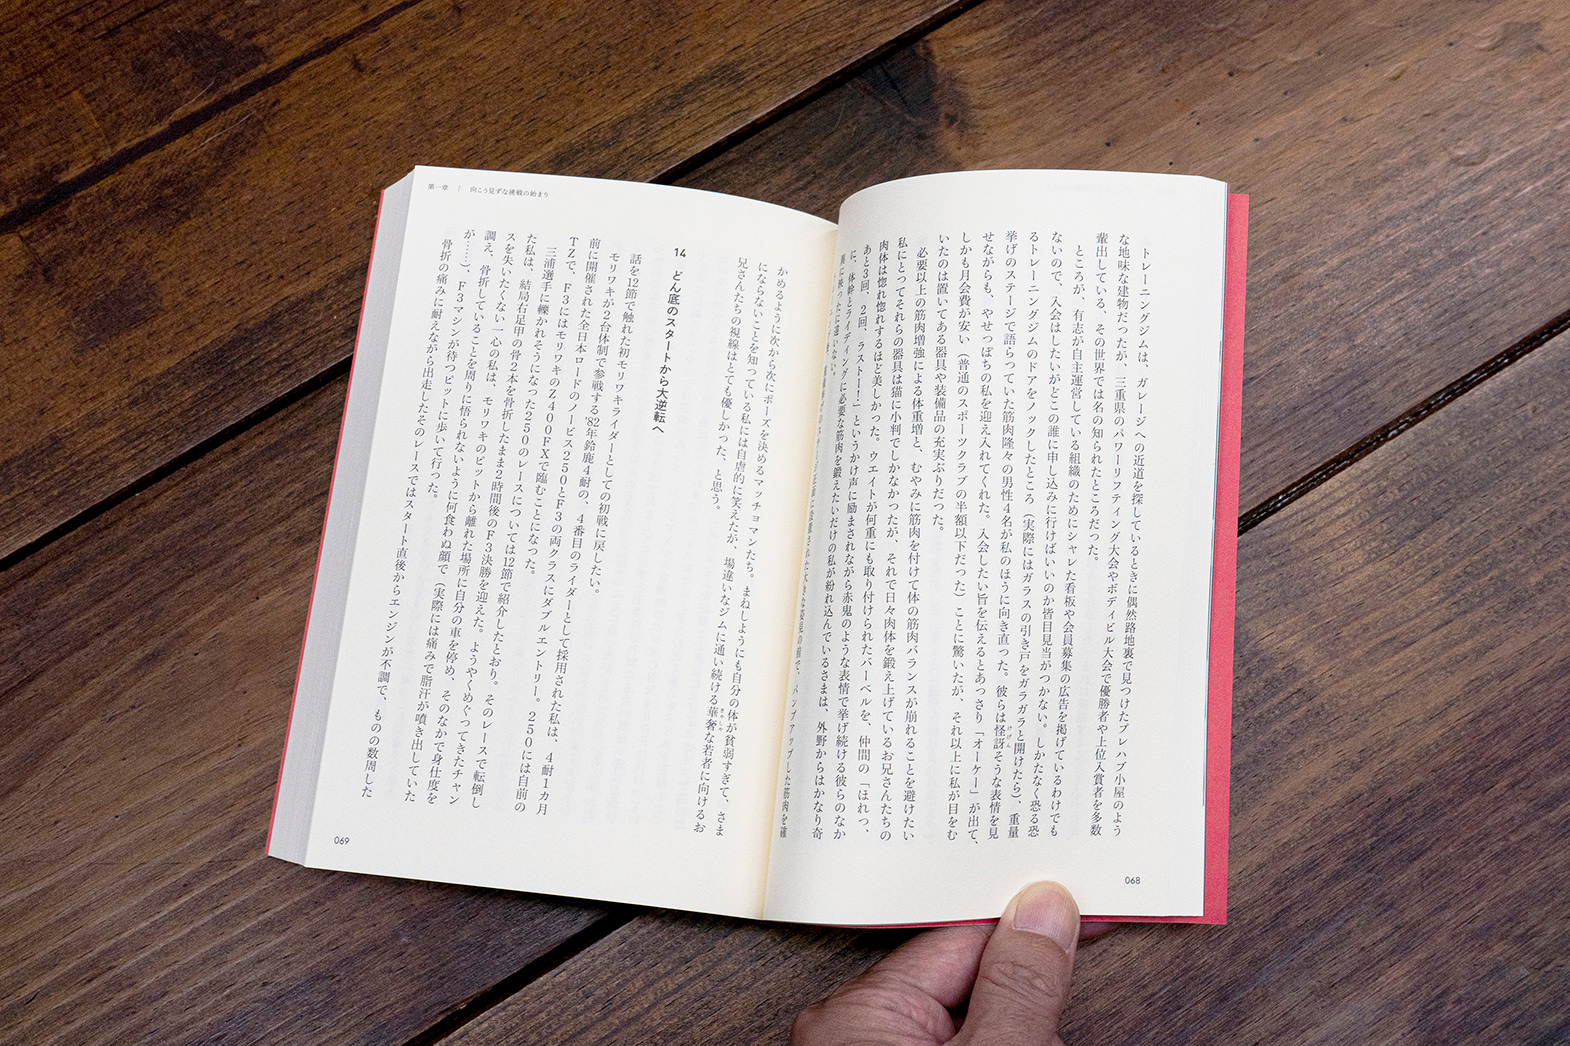 トレーニングジムは、ガレージへの近道を探しているときに偶然路地裏で見つけたプレハブ小屋のよう
な地味な建物だったが、三重県のパワーリフティング大会やボディビル大会で優勝者や上位入賞者を多数
輩出している、その世界では名の知られたところだった。
ところが、有志が自主運営している組織のためにシャレた看板や会員募集の広告を掲げているわけでも
ないので、入会はしたいがどこの誰に申し込みに行けばいいのか皆目見当がつかない。しかたなく恐る恐
るトレーニングジムのドアをノックしたところ(実際にはガラスの引き戸をガラガラと開けたら)、重量
挙げのステージで語らっていた筋肉隆々の男性4名が私のほうに向き直った。彼らは怪訝そうな表情を見
せながらも、やせっぽちの私を迎え入れてくれた。入会したい旨を伝えるとあっさり「オーケー」が出て、
しかも月会費が安い(普通のスポーツクラブの半額以下だった)ことに驚いたが、それ以上に私が目をむ
いたのは置いてある器具や装備品の充実ぶりだった。
必要以上の筋肉増強による体重増と、むやみに筋肉を付けて体の筋肉バランスが崩れることを避けたい
私にとってそれらの器具は猫に小判でしかなかったが、それで日々肉体を鍛え上げているお兄さんたちの
肉体は惚れ惚れするほど美しかった。ウエイトが何重にも取り付けられたバーベルを、仲間の「ほれっ、
あと3回、2回、ラストー!」というかけ声に励まされながら赤鬼のような表情で挙げ続ける彼らのなか
に、体幹とライディングに必要な筋肉を鍛えたいだけの私が紛れ込んでいるさまは、外野からはかなり奇
異に映ったに違いない。
大きな姿見の前で、パンプアップした筋肉を確
068
かめるように次から次にポーズを決めるマッチョマンたち。まねしようにも自分の体が貧弱すぎて、さま
にならないことを知っている私には自虐的に笑えたが、場違いなジムに通い続ける華奢な若者に向けるお
兄さんたちの視線はとても優しかった、と思う。
14 どん底のスタートから大逆転へ
話を12節で触れた初モリワキライダーとしての初戦に戻したい。
モリワキが2台体制で参戦する'82年鈴鹿4耐の、4番目のライダーとして採用された私は、4耐1カ月
前に開催された全日本ロードのノービス250とF3の両クラスにダブルエントリー。250には自前の
TZで、F3にはモリワキのZ400FXで臨むことになった。
三浦選手に轢かれそうになった250のレースについては12節で紹介したとおり。そのレースで転倒し
た私は、結局右足甲の骨2本を骨折したまま2時間後のF3決勝を迎えた。ようやくめぐってきたチャン
スを失いたくない一心の私は、モリワキのピットから離れた場所に自分の車を停め、そのなかで身仕度を
調え、骨折していることを周りに悟られないように何食わぬ顔で(実際には痛みで脂汗が噴き出していた
が……)、F3マシンが待つピットに歩いて行った。
骨折の痛みに耐えながら出走したそのレースではスタート直後からエンジンが不調で、ものの数周した
第一章 | 向こう見ずな挑戦の始まり
069